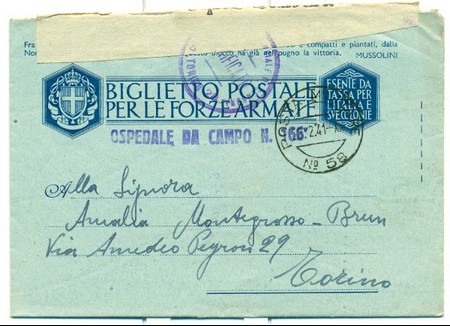 Fra compatti e piantati, dalla
vittoria.
MUSSOLINI
VERIFICATO
BIGLIETTO POSTALE
PER LE FORZE ARMATE
ESENTE DA
TASSA PER
L'ITALIA E
SVE COLONIE
OSPEDALE DA CAMPO N.
POSTA
41
No 58
Alla Signora
Amalia Montegrosso-Brun
Via Amedeo Peyron 29
Torino